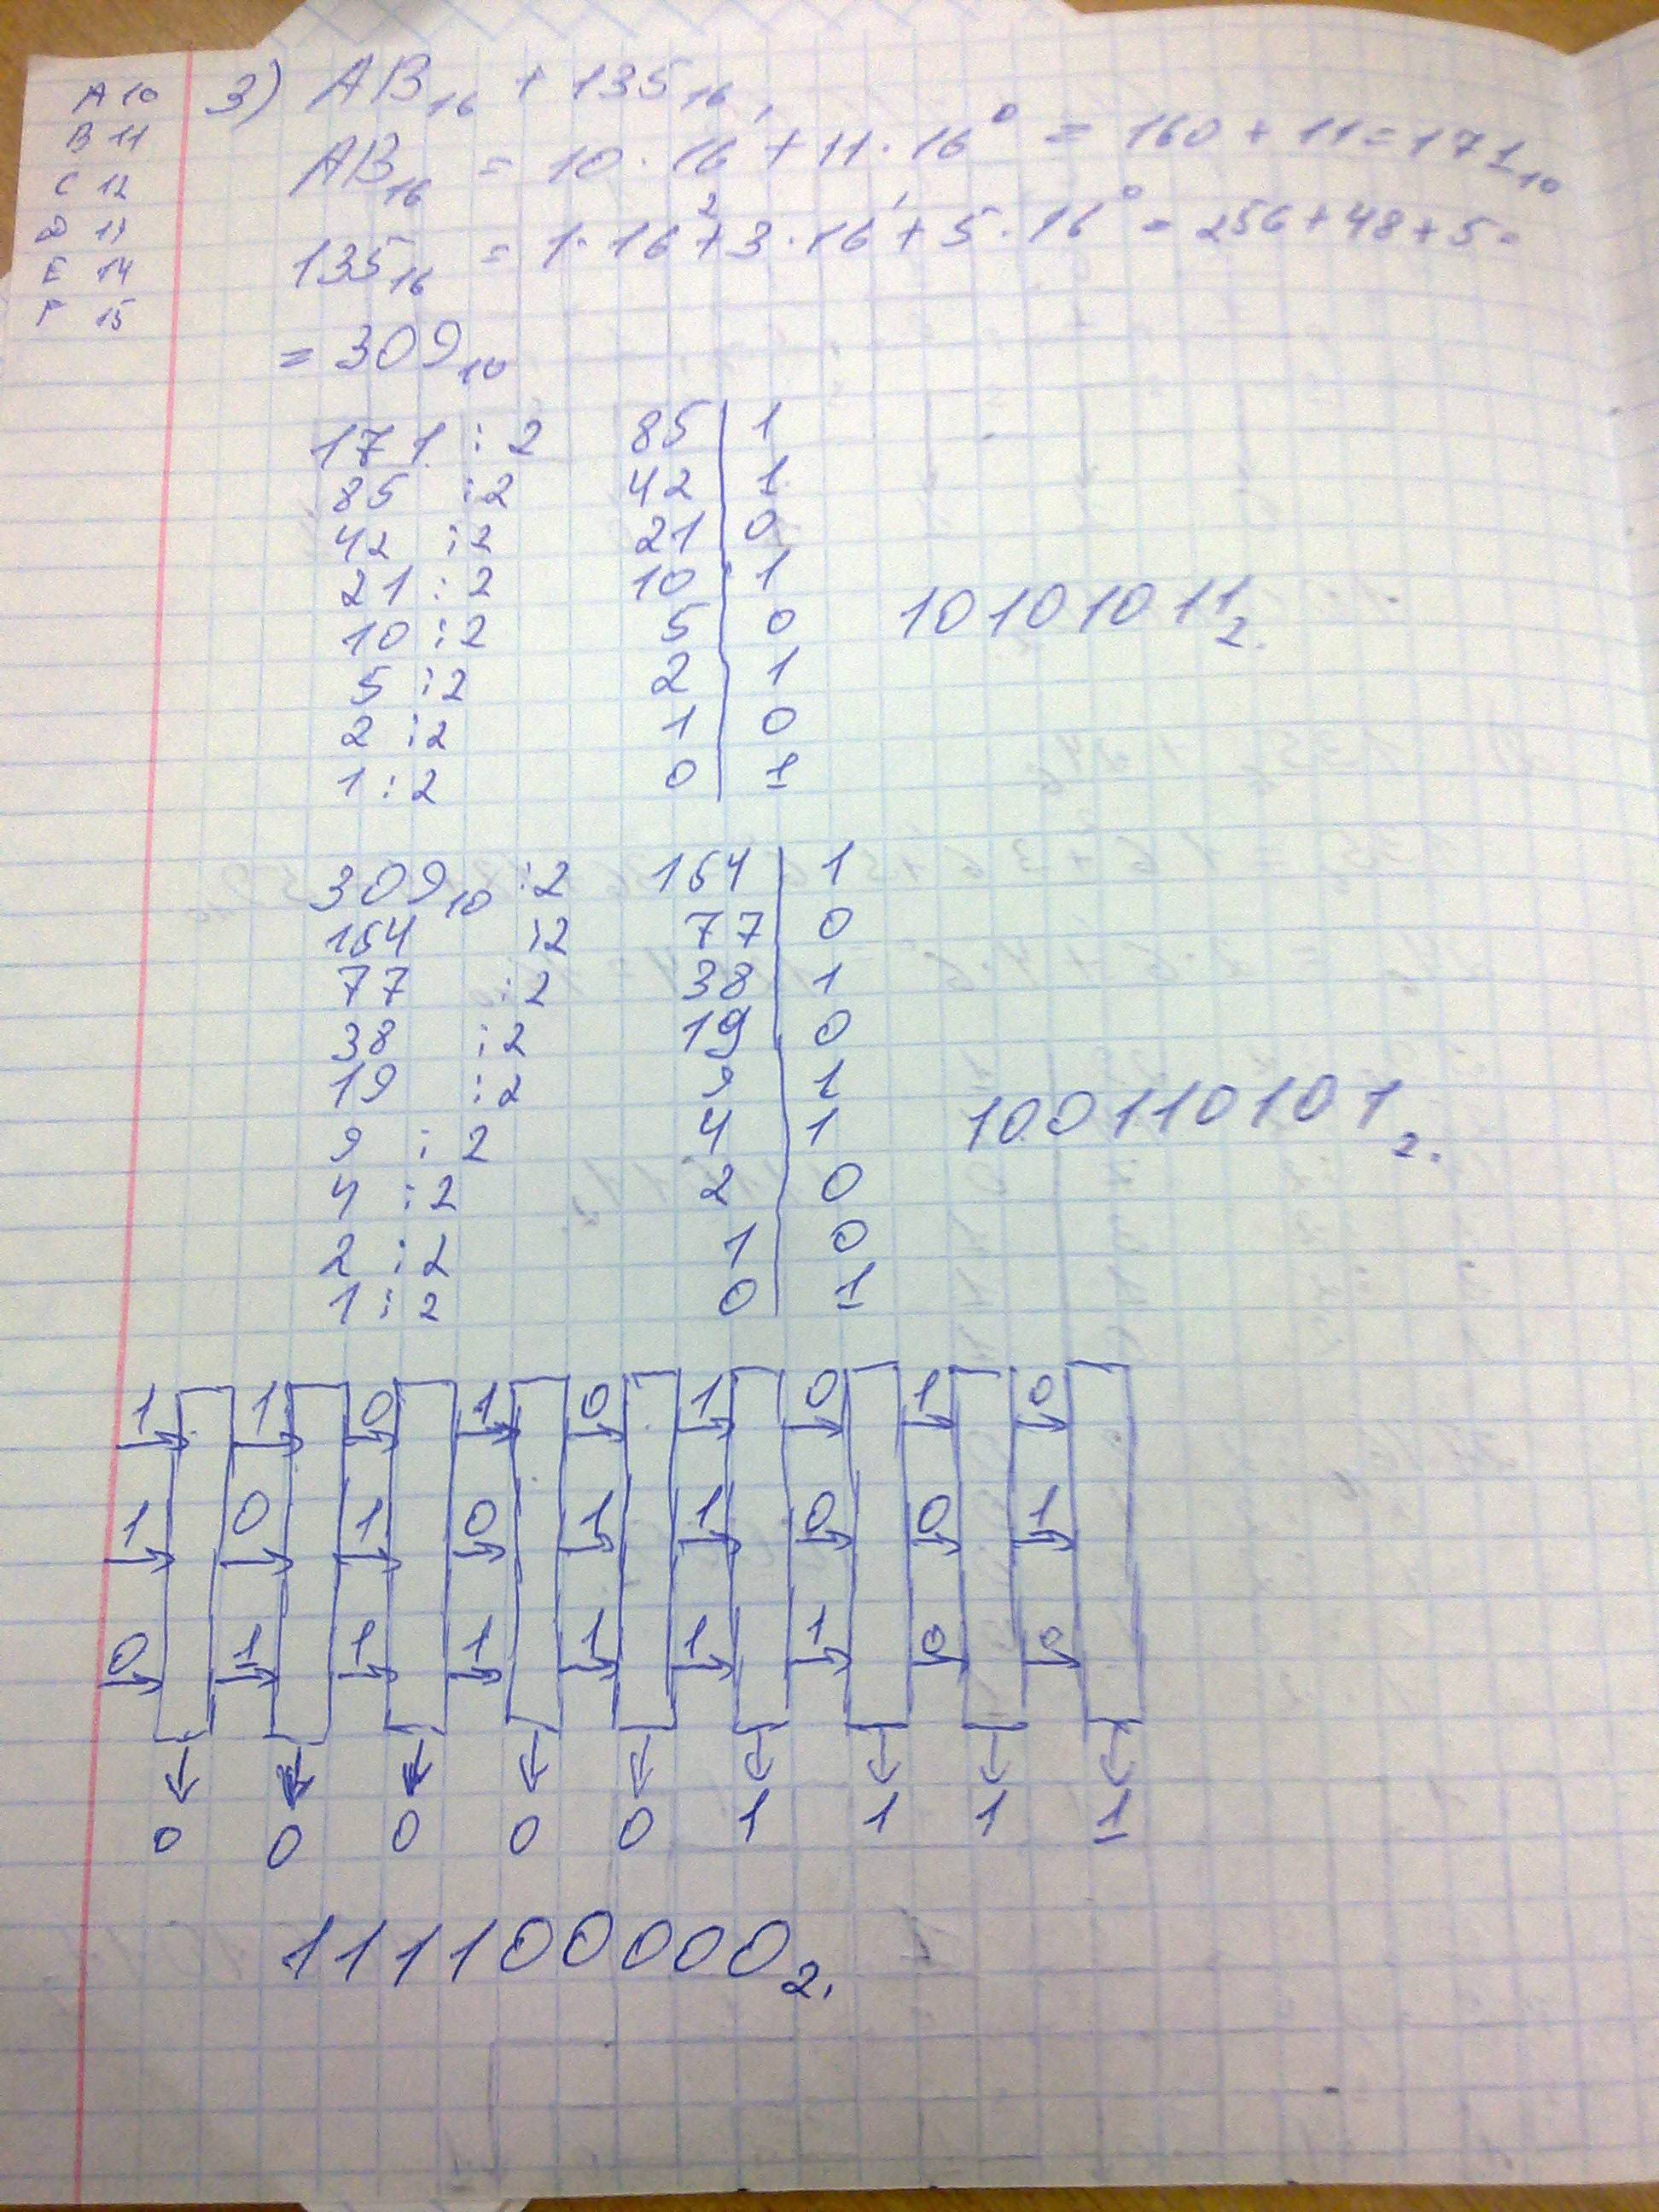 A 10
B 11
C 12
D 13
E 14
F 15
3) AB₁₆ + 135₁₆
AB₁₆ = 10 · 16¹ + 11 · 16⁰ = 160 + 11 = 171₁₀
135₁₆ = 1 · 16² + 3 · 16¹ + 5 · 16⁰ = 256 + 48 + 5 =
= 309₁₀
171 : 2 85 | 1
85 : 2 42 | 1
42 : 2 21 | 0
21 : 2 10 | 1
10 : 2 5 | 0 10101011₂.
5 : 2 2 | 1
2 : 2 1 | 0
1 : 2 0 | 1
309₁₀ : 2 154 | 1
154 : 2 77 | 0
77 : 2 38 | 1
38 : 2 19 | 0
19 : 2 9 | 1
9 : 2 4 | 1 100110101₂.
4 : 2 2 | 0
2 : 2 1 | 0
1 : 2 0 | 1
1 1 0 1 0 1 0 1 0
1 0 1 0 1 1 0 0 1
0 1 1 1 1 1 1 0 0
0 0 0 0 0 1 1 1 1
111100000₂.